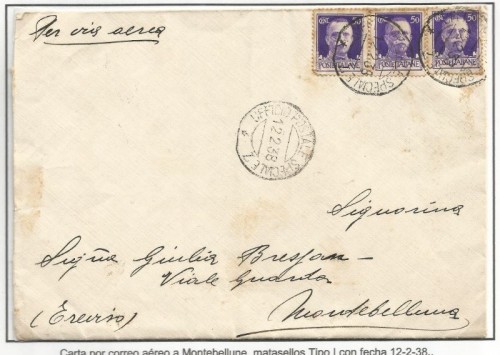 Per via aerea
CENT. 50 50 50
POSTE ITALIANE POSTE ITALIANE POSTE ITALIANE
UFFICIO POSTALE SPECIALE 7
12.2.38
Signorina
Sigña Giulia Bressan
Viale Guarda
(Treviso) Montebelluna
Carta por correo aéreo a Montebellune, matasellos Tipo I con fecha 12-2-38..